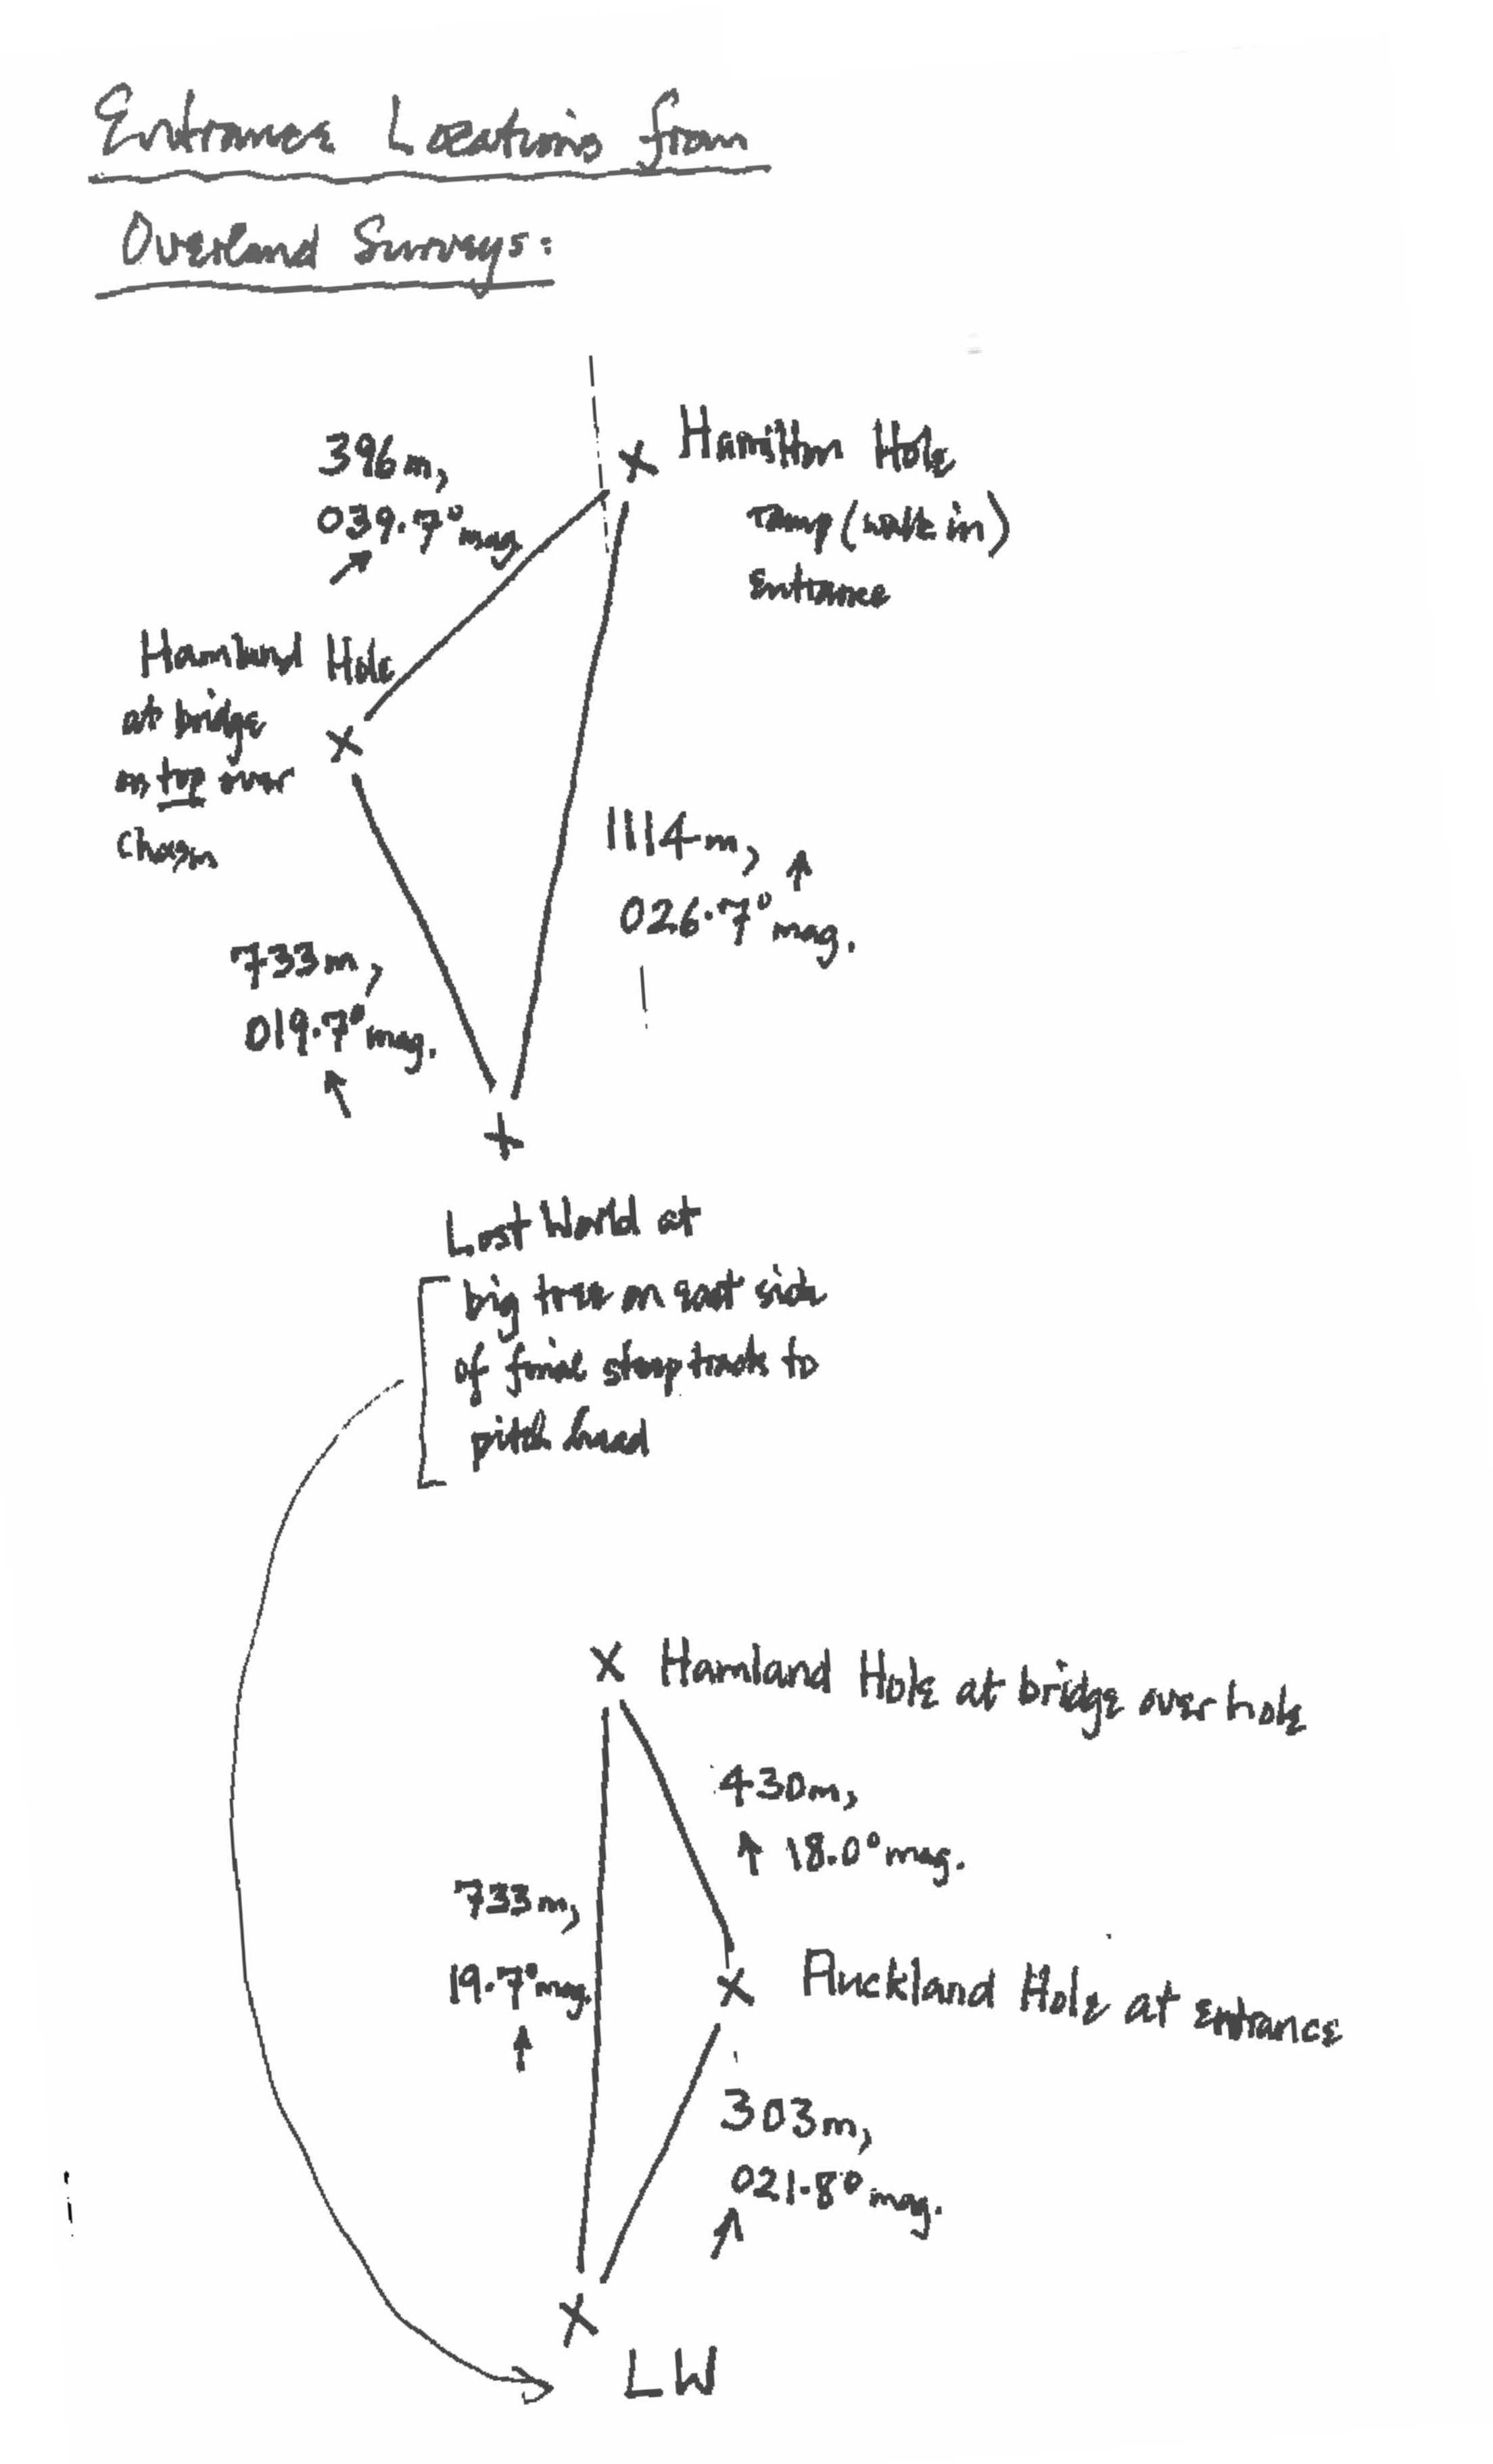 Entrance Locations from
Overland Surveys:
396m,
039.7° mag
Hamilton Hole
ramp (walk in)
entrance
Hamland Hole
at bridge
on top over
chasm
1114m,
026.7° mag.
733m,
019.7° mag.
Lost World at
big tree on east side
of final steep track to
pitch head
Hamland Hole at bridge over hole
430m,
18.0° mag.
733m,
19.7° mag.
Auckland Hole at entrance
303m,
021.8° mag.
LW